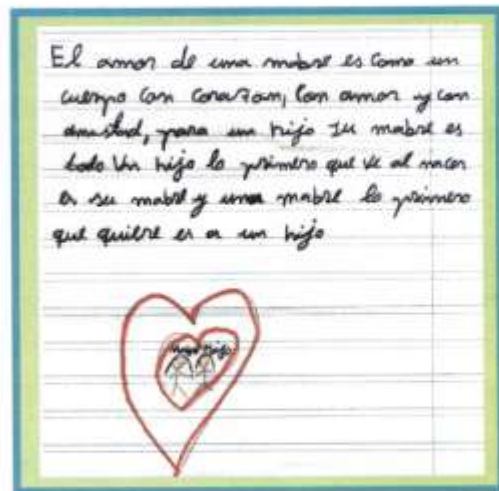 El amor de una mabre es como un
cuerpo con corazon, con amor y con
amistad, para un hijo su mabre es
todo Un hijo lo primero que ve al nacer
es su mabre y una mabre lo primero
que quiere es a un hijo
hijo